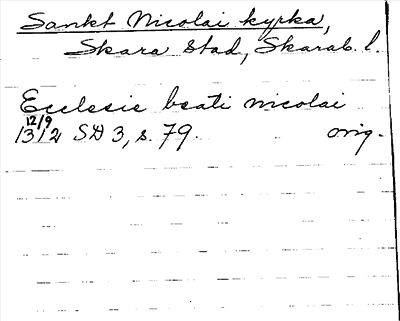 Sankt Nicolai kyrka,
Skara Stad, Skarab. l.
Ecclesie beati nicolai
12/9
1312 SD 3, s. 79. orig.